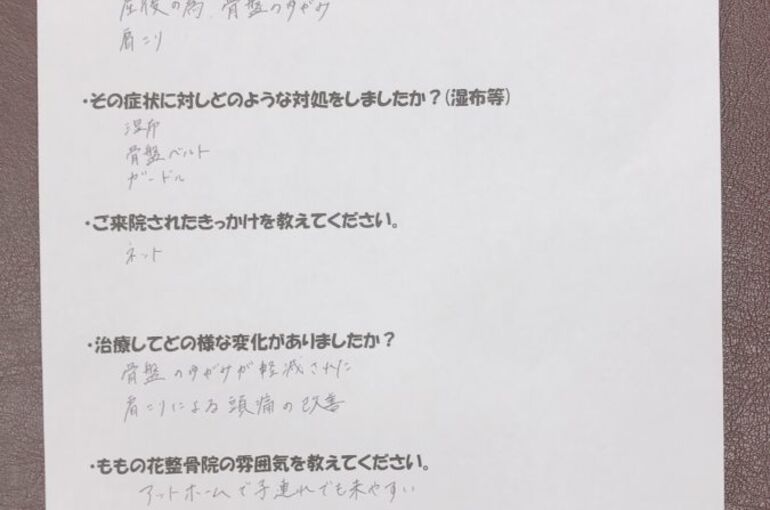 産後の為、骨盤のゆがみ
肩こり
・その症状に対しどのような対処をしましたか？(湿布等)
湿布
骨盤ベルト
ガードル
・ご来院されたきっかけを教えてください。
ネット
・治療してどの様な変化がありましたか？
骨盤のゆがみが軽減された
肩こりによる頭痛の改善
・ももの花整骨院の雰囲気を教えてください。
アットホームで子連れでも来やすい